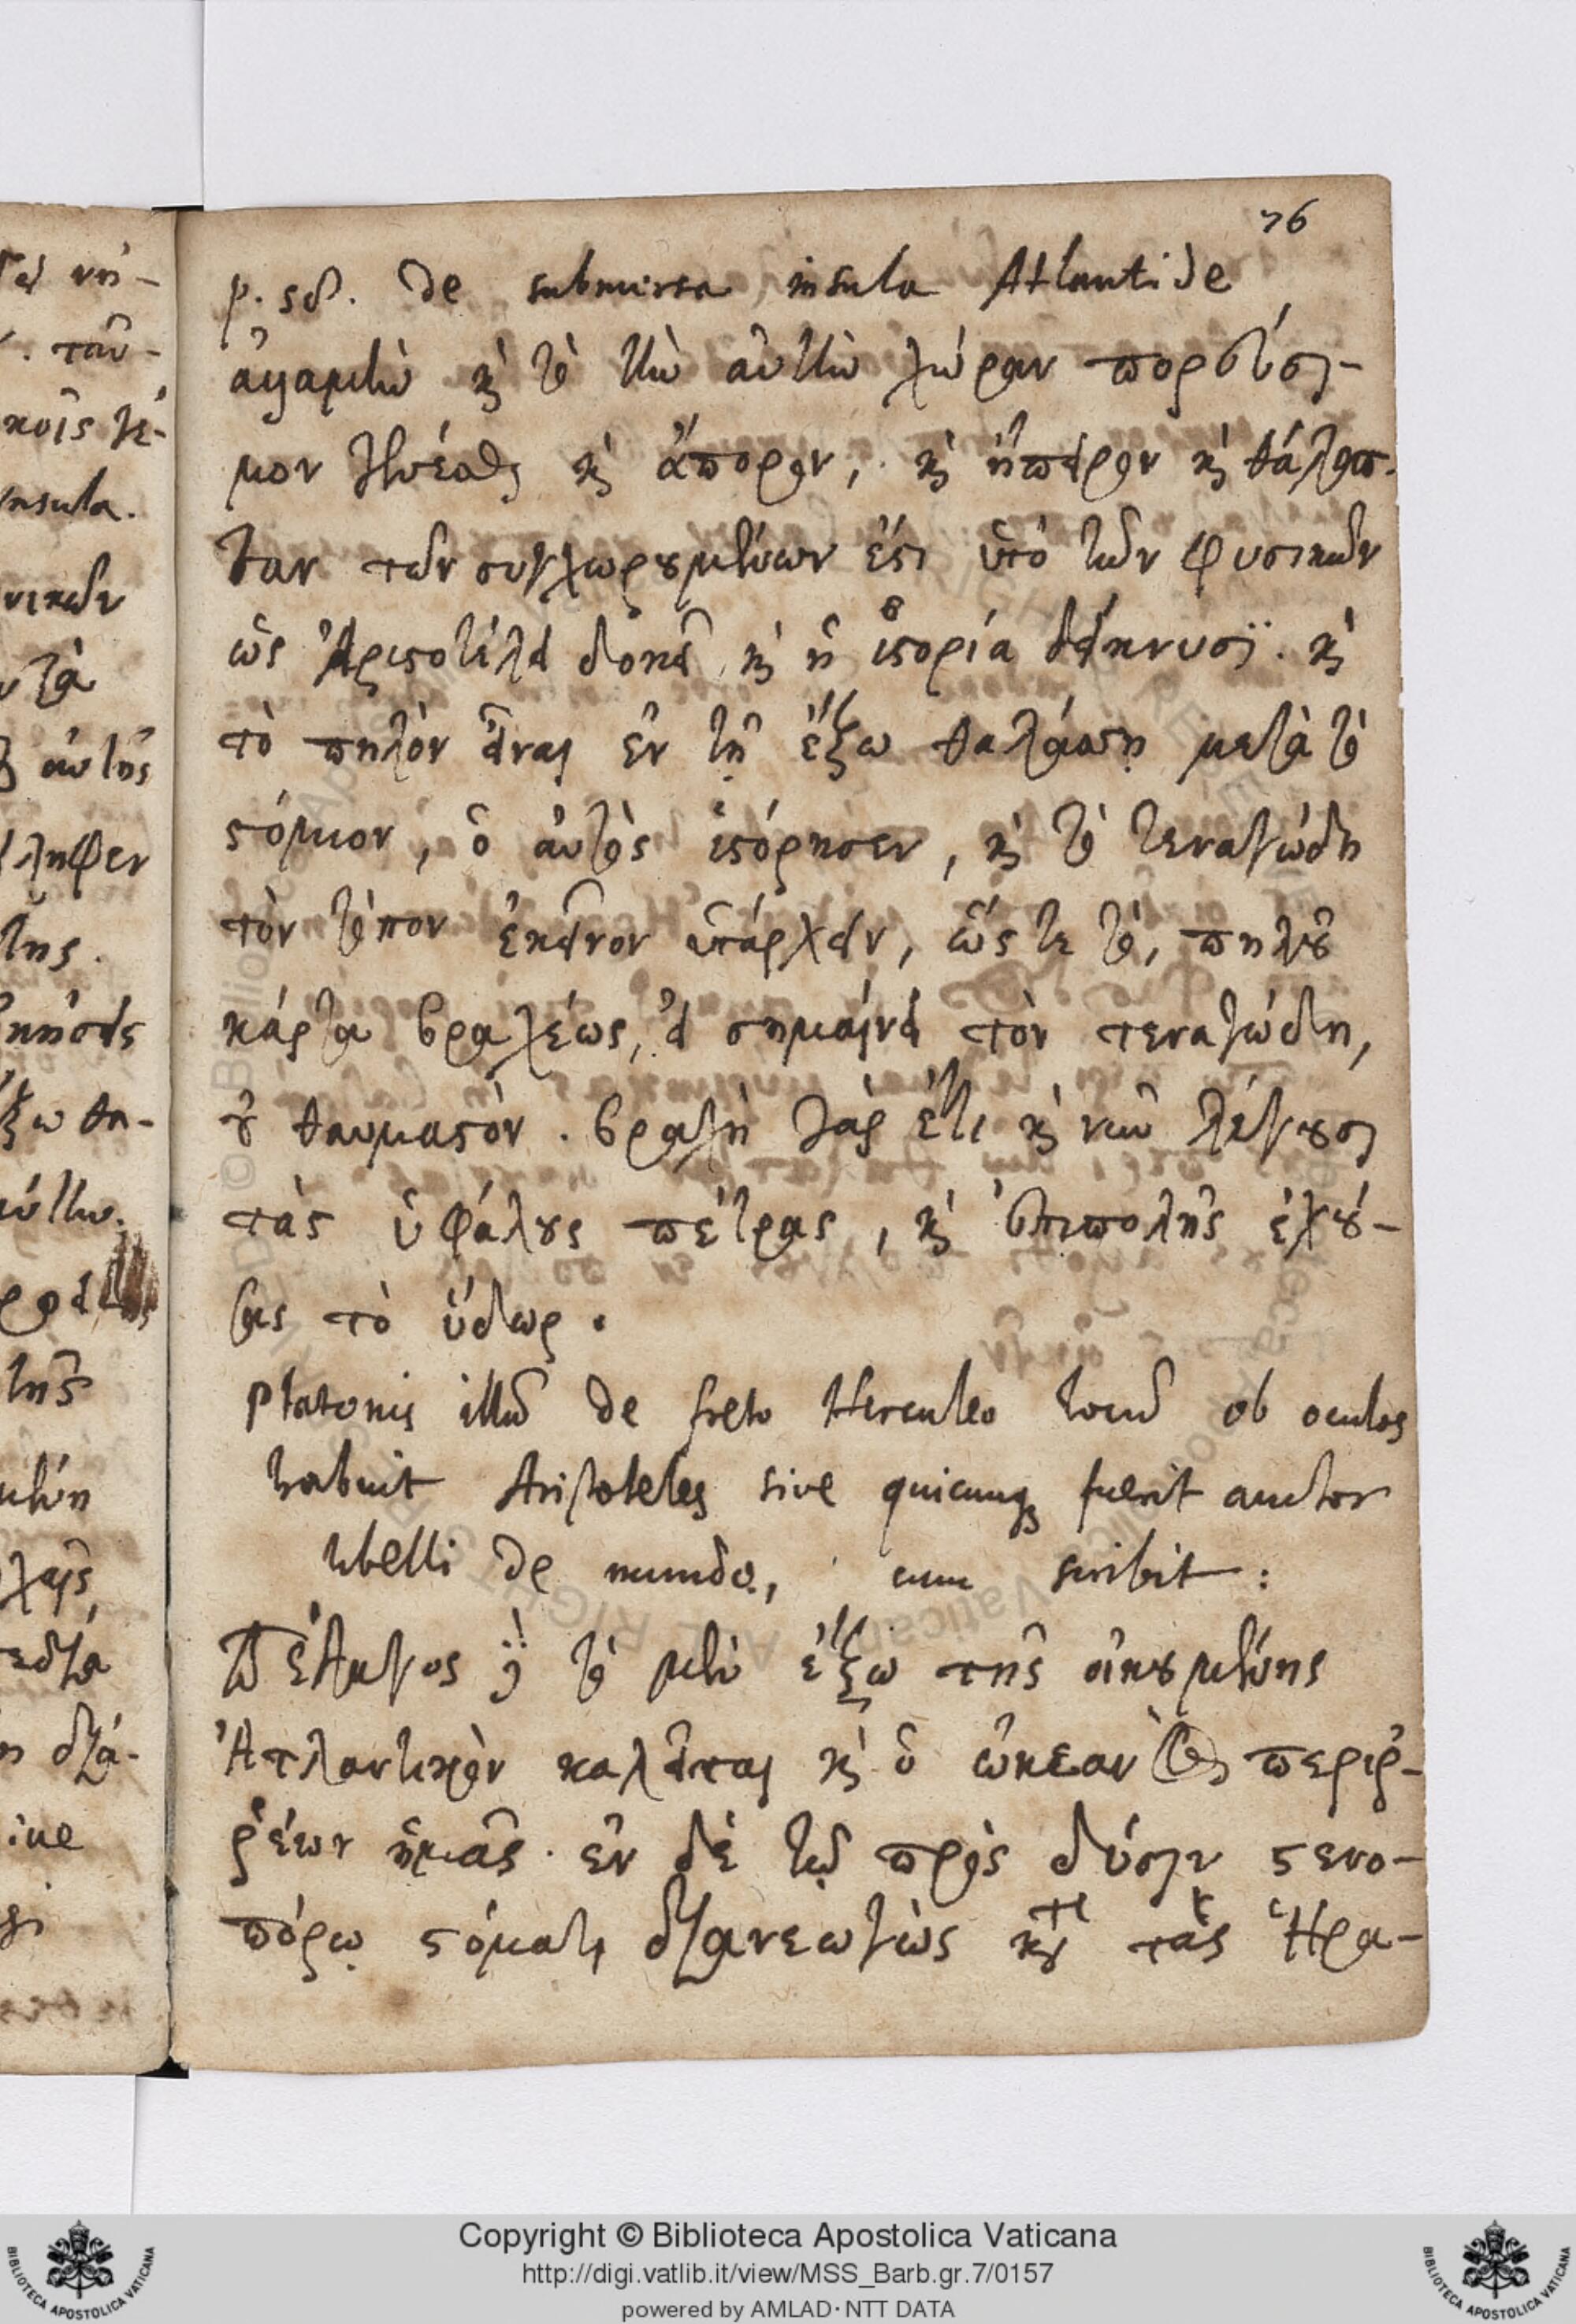 76
p. 58. de submersa insula Atlantide
ἄγαμεν καὶ τὸ τὴν αὐτὴν χώραν πορεύσι-
μον γενέσθαι καὶ ἄπορον, καὶ ἤπειρον καὶ θάλατ-
ταν τῶν συγχωρουμένων ἐστι ὑπὸ τῶν φυσικῶν
ὡς Ἀριστοτέλει δοκεῖ καὶ ἡ ἱστορία δείκνυσι. καὶ
τὸ πηλὸν εἶναι ἐν τῇ ἔξω θαλάσσῃ μετὰ τὸ
στόμιον, ὁ αὐτὸς ἱστόρησεν, καὶ τὸ τεναγώδη
τὸν τόπον ἐκεῖνον ὑπάρχειν, ὥς τε τό, πηλοῦ
κάρτα βραχέως, εἰ σημαίνει τὸν τεναγώδη,
οὐ θαυμαστόν. βραχῆ γὰρ ἔτι καὶ νῦν λέγουσι
τὰς ὑφάλους πέτρας, καὶ ἐπιπολῆς ἐχού-
σας τὸ ὕδωρ.
Platonis illū de freto Herculeo locū ob oculos
habuit Aristoteles sive quicunq; fuerit auctor
libelli de mundo, cum scribit:
Πέλαγος δὲ τὸ μὲν ἔξω τῆς οἰκουμένης
Ἀτλαντικὸν καλεῖται καὶ ὁ ὠκεανὸς περιρ-
ῥέων ἡμᾶς. ἐν δὲ τῷ πρὸς δύσιν στενο-
πόρῳ στόματι διανεωγὼς κατὰ τὰς Ἡρα-
Copyright © Biblioteca Apostolica Vaticana
http://digi.vatlib.it/view/MSS_Barb.gr.7/0157
powered by AMLAD·NTT DATA